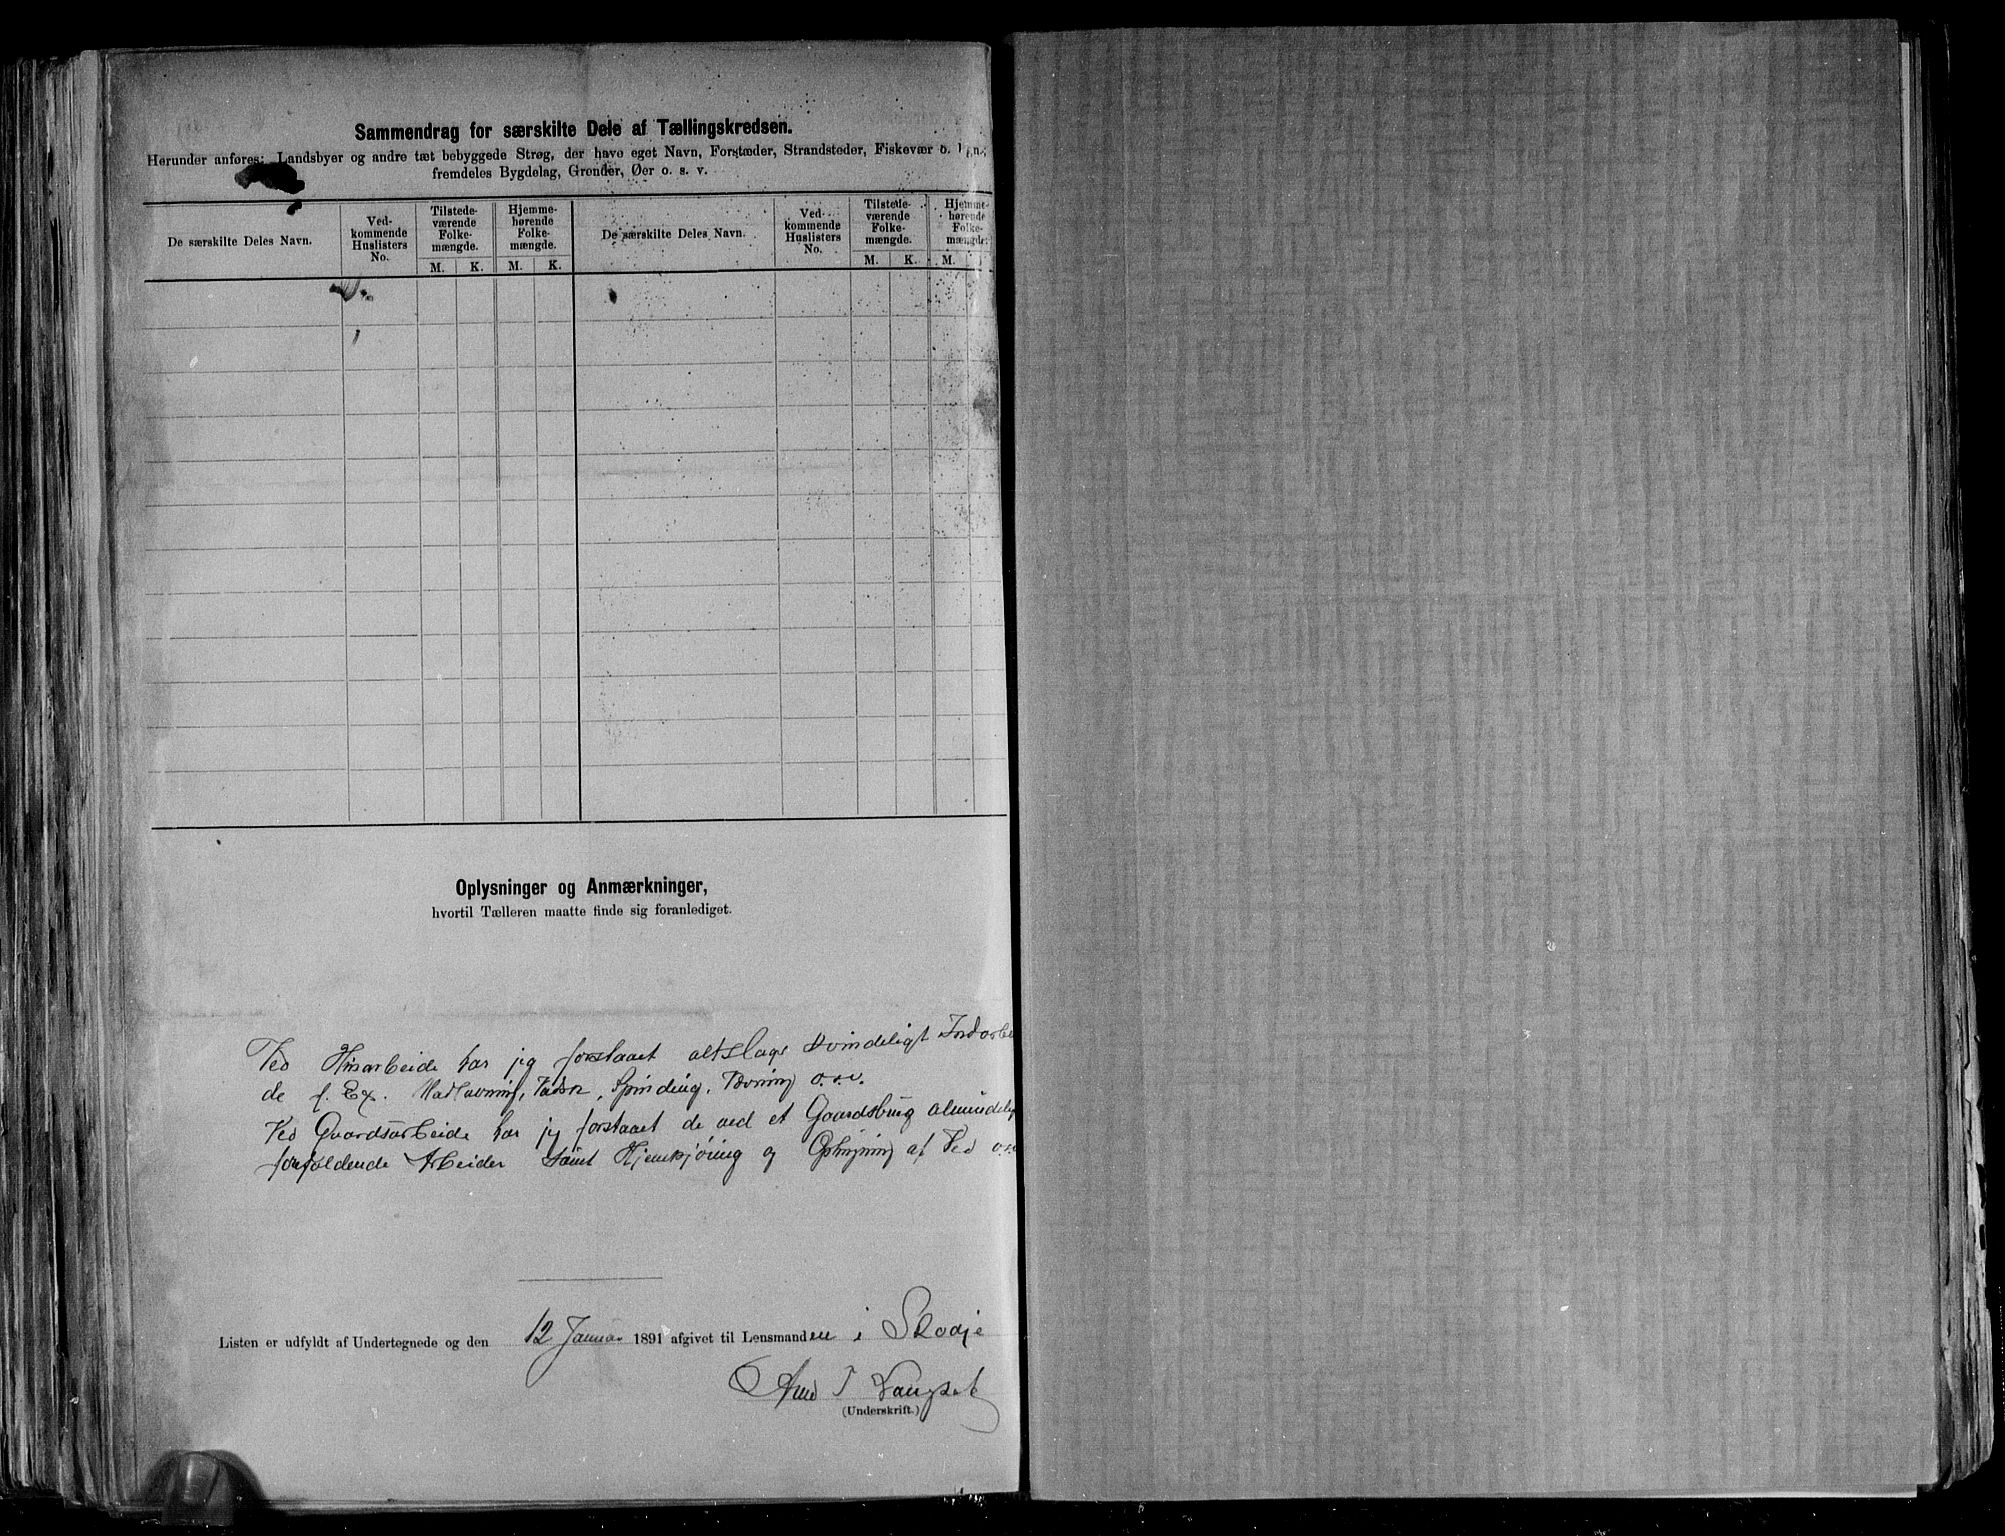 Sammendrag for særskilte Dele af Tællingskredsen.
Herunder anføres: Landsbyer og andre tæt bebyggede Strøg, der have eget Navn, Forstæder, Strandsteder, Fiskevær o. lgn.;
fremdeles Bygdelag, Grender, Øer o. s. v.
De særskilte Deles Navn.
Ved-
kommende
Huslisters
No.
Tilstede-
værende
Folke-
mængde.
M. K.
Hjemme-
hørende
Folke-
mængde.
M. K.
De særskilte Deles Navn.
Ved-
kommende
Huslisters
No.
Tilstede-
værende
Folke-
mængde.
M. K.
Hjemme-
hørende
Folke-
mængde.
M.
Oplysninger og Anmærkninger,
hvortil Tælleren maatte finde sig foranlediget.
Ved Husarbeide har jeg forstaaet altslags kvindeligt
de f. Ex. Madlavning, Vadsk, Spinding, Vævning o.s.v.
Ved Gaardsarbeide har jeg forstaaet de ved et Gaardsbrug almindelig
forfaldende Arbeider samt Hjemkjøring og Ophugning af Ved o.s.v
Listen er udfyldt af Undertegnede og den 12 Januar 1891 afgivet til Lensmanden i Skodje
T
(Underskrift.)